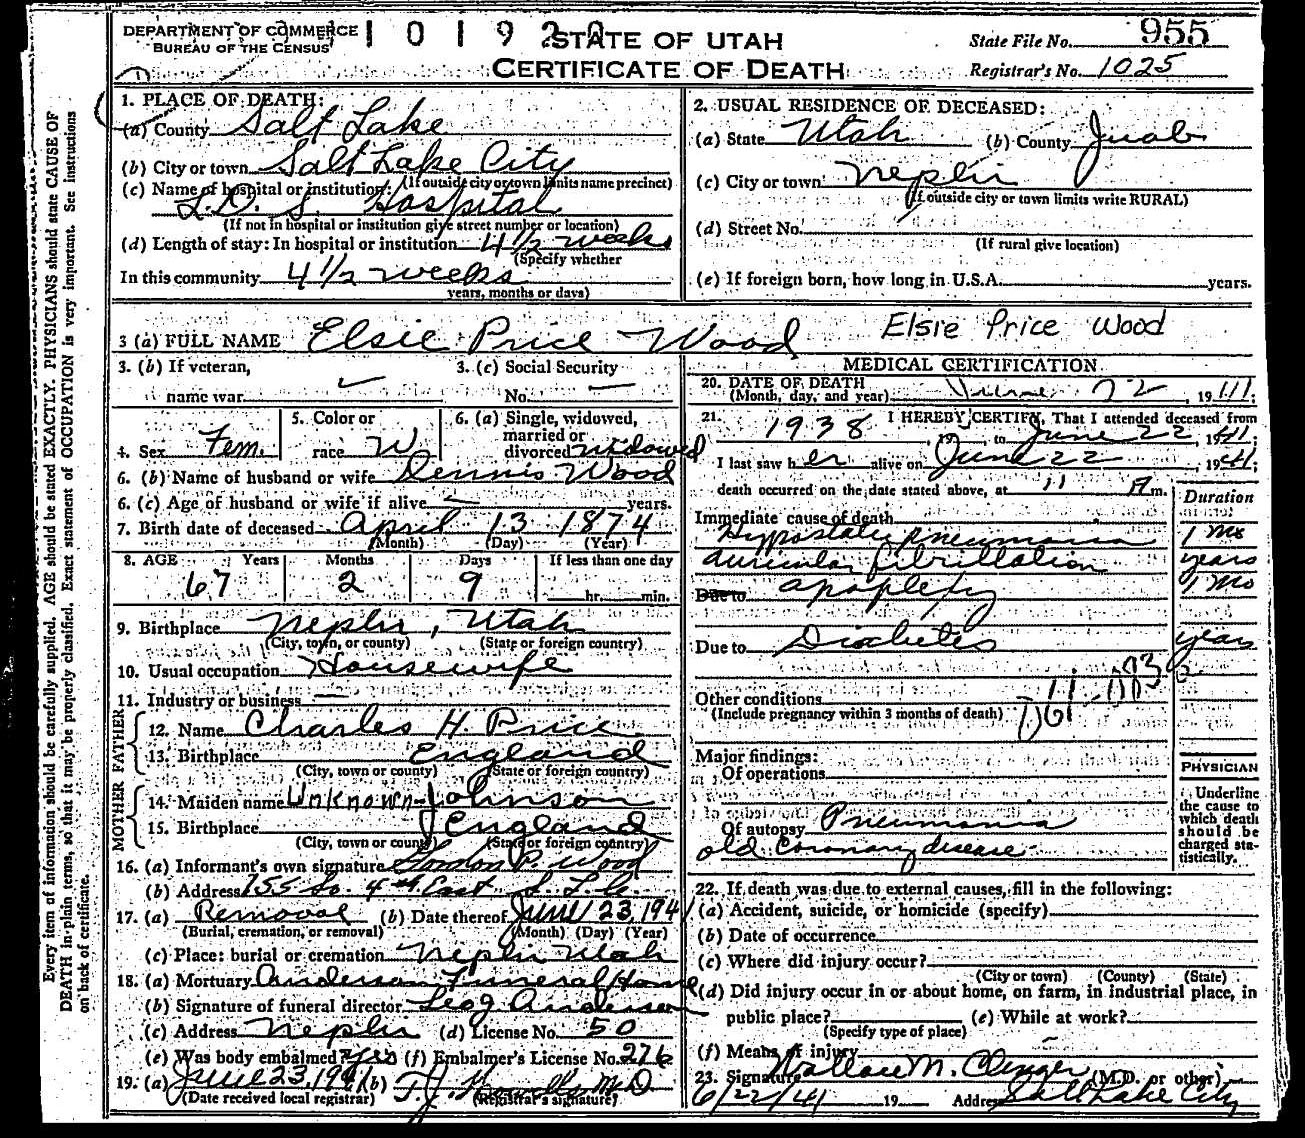 DEPARTMENT OF COMMERCE
BUREAU OF THE CENSUS
STATE OF UTAH
CERTIFICATE OF DEATH
State File No. 955
Registrar's No. 1025
Every item of information should be carefully supplied. AGE should be stated EXACTLY. PHYSICIANS should state CAUSE OF
DEATH in plain terms, so that it may be properly classified. Exact statement of OCCUPATION is very important. See instructions
on back of certificate.
1. PLACE OF DEATH:
(a) County Salt Lake
(b) City or town Salt Lake City
(If outside city or town limits name precinct)
(c) Name of hospital or institution:
L.D.S. Hospital
(If not in hospital or institution give street number or location)
(d) Length of stay: In hospital or institution 4 1/2 weeks
(Specify whether
In this community 4 1/2 weeks
years, months or days)
2. USUAL RESIDENCE OF DECEASED:
(a) State Utah (b) County Juab
(c) City or town Nephi
(If outside city or town limits write RURAL)
(d) Street No.
(If rural give location)
(e) If foreign born, how long in U.S.A. years.
3 (a) FULL NAME Elsie Price Wood Elsie Price Wood
3. (b) If veteran,
name war
3. (c) Social Security
No.
4. Sex Fem.
5. Color or
race W
6. (a) Single, widowed,
married or
divorced widowed
6. (b) Name of husband or wife Dennis Wood
6. (c) Age of husband or wife if alive years.
7. Birth date of deceased April 13 1874
(Month) (Day) (Year)
8. AGE Years Months Days If less than one day
67 2 9 hr. min.
9. Birthplace Nephi, Utah
(City, town, or county) (State or foreign country)
10. Usual occupation Housewife
11. Industry or business
FATHER
12. Name Charles H. Price
13. Birthplace England
(City, town or county) (State or foreign country)
MOTHER
14. Maiden name Unknown Johnson
15. Birthplace England
(City, town or county) (State or foreign country)
16. (a) Informant's own signature Gordon P. Wood
(b) Address 155 So. 4th East S.L.C.
17. (a) Removal (b) Date thereof June 23, 1941
(Burial, cremation, or removal) (Month) (Day) (Year)
(c) Place: burial or cremation Nephi Utah
18. (a) Mortuary Anderson Funeral Home
(b) Signature of funeral director Leo J. Anderson
(c) Address Nephi (d) License No. 50
(e) Was body embalmed? Yes (f) Embalmer's License No. 276
19. (a) June 23, 1941 (b) T.J. Howells M.D.
(Date received local registrar) (Registrar's signature)
MEDICAL CERTIFICATION
20. DATE OF DEATH
(Month, day, and year) June 22, 1941;
21. I HEREBY CERTIFY, That I attended deceased from
1938, 19 , to June 22, 1941;
I last saw her alive on June 22, 1941;
death occurred on the date stated above, at 11 A m.
Duration
Immediate cause of death
Hypostatic pneumonia 1 mo
auricular fibrillation years
Due to apoplexy 1 Mo
Due to Diabetes years
Other conditions
(Include pregnancy within 3 months of death)
Major findings:
Of operations
Of autopsy Pneumonia
old coronary disease
PHYSICIAN
Underline
the cause to
which death
should be
charged sta-
tistically.
22. If death was due to external causes, fill in the following:
(a) Accident, suicide, or homicide (specify)
(b) Date of occurrence
(c) Where did injury occur?
(City or town) (County) (State)
(d) Did injury occur in or about home, on farm, in industrial place, in
public place? (e) While at work?
(Specify type of place)
(f) Means of injury
23. Signature Wallace M. (M.D. or other)
6/22/41 19 Address Salt Lake City